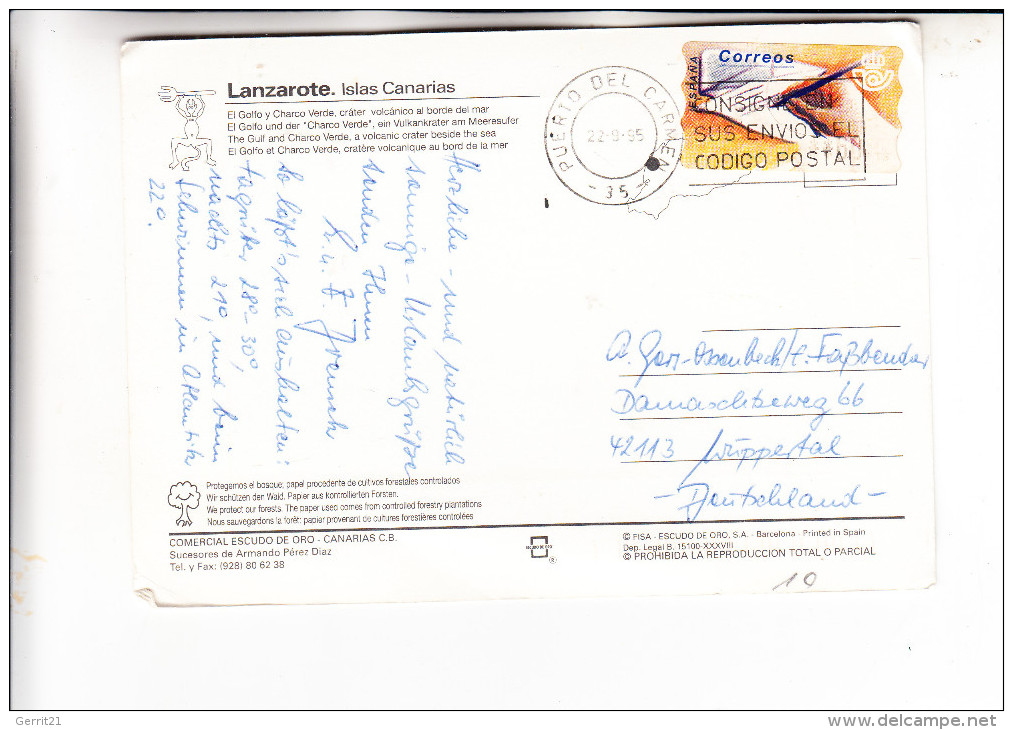 Lanzarote. Islas Canarias
El Golfo y Charco Verde, cráter volcánico al borde del mar
El Golfo und der "Charco Verde", ein Vulkankráter am Meeresufer
The Gulf and Charco Verde, a volcanic crater beside the sea
El Golfo et Charco Verde, cratère volcanique au bord de la mer
Correos
ESPAÑA
PUERTO DEL CARMEN
22-9-95
- 35 -
CONSIGNE EN
SUS ENVIOS EL
CODIGO POSTAL
Herzliche - und natürlich
sonnige - Urlaubsgrüße
senden Ihnen
So läßt's sich aushalten:
tagsüber 28°-30°,
nachts 21°, und beim
Schwimmen im Atlantik
22°.
Damaschkeweg 66
42113 Wuppertal
- Deutschland -
Protegemos el bosque, papel procedente de cultivos forestales controlados
Wir schützen den Wald. Papier aus kontrollierten Forsten.
We protect our forests. The paper used comes from controlled forestry plantations
Nous sauvegardons la forêt: papier provenant de cultures forestières controlées
COMERCIAL ESCUDO DE ORO - CANARIAS C.B.
Sucesores de Armando Pérez Diaz
Tel. y Fax: (928) 80 62 38
ESCUDO DE ORO
®
© FISA - ESCUDO DE ORO, S.A. - Barcelona - Printed in Spain
Dep. Legal B. 15100-XXXVIII
© PROHIBIDA LA REPRODUCCION TOTAL O PARCIAL
10
Gerrit21
www.delcampe.net